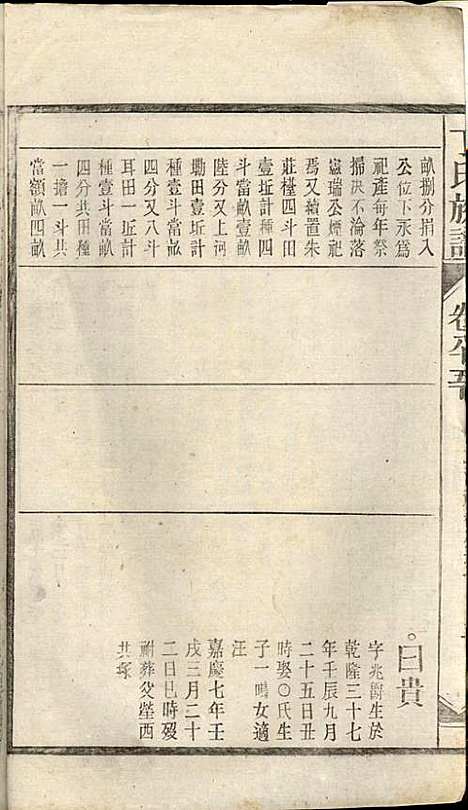 丁氏族譜
畝捌分捐入
公位下永爲
祀產每年祭
掃決不淪落
瑞公煙祀
焉又續置朱
莊槿四斗田
壹坵計種四
斗當畝壹畝
陸分又上河
墈田壹坵計
種壹斗當畝
四分又八斗
耳田一坵計
種壹斗當畝
四分共田種
一擔一斗共
當額畝四畝
曰貴
字兆謝生於
乾隆三十七
年壬辰九月
二十五日丑
時娶〇氏生
子一鳴女適
汪
嘉慶七年壬
戌三月二十
二日巳時歿
祔葬父塋西
共塚